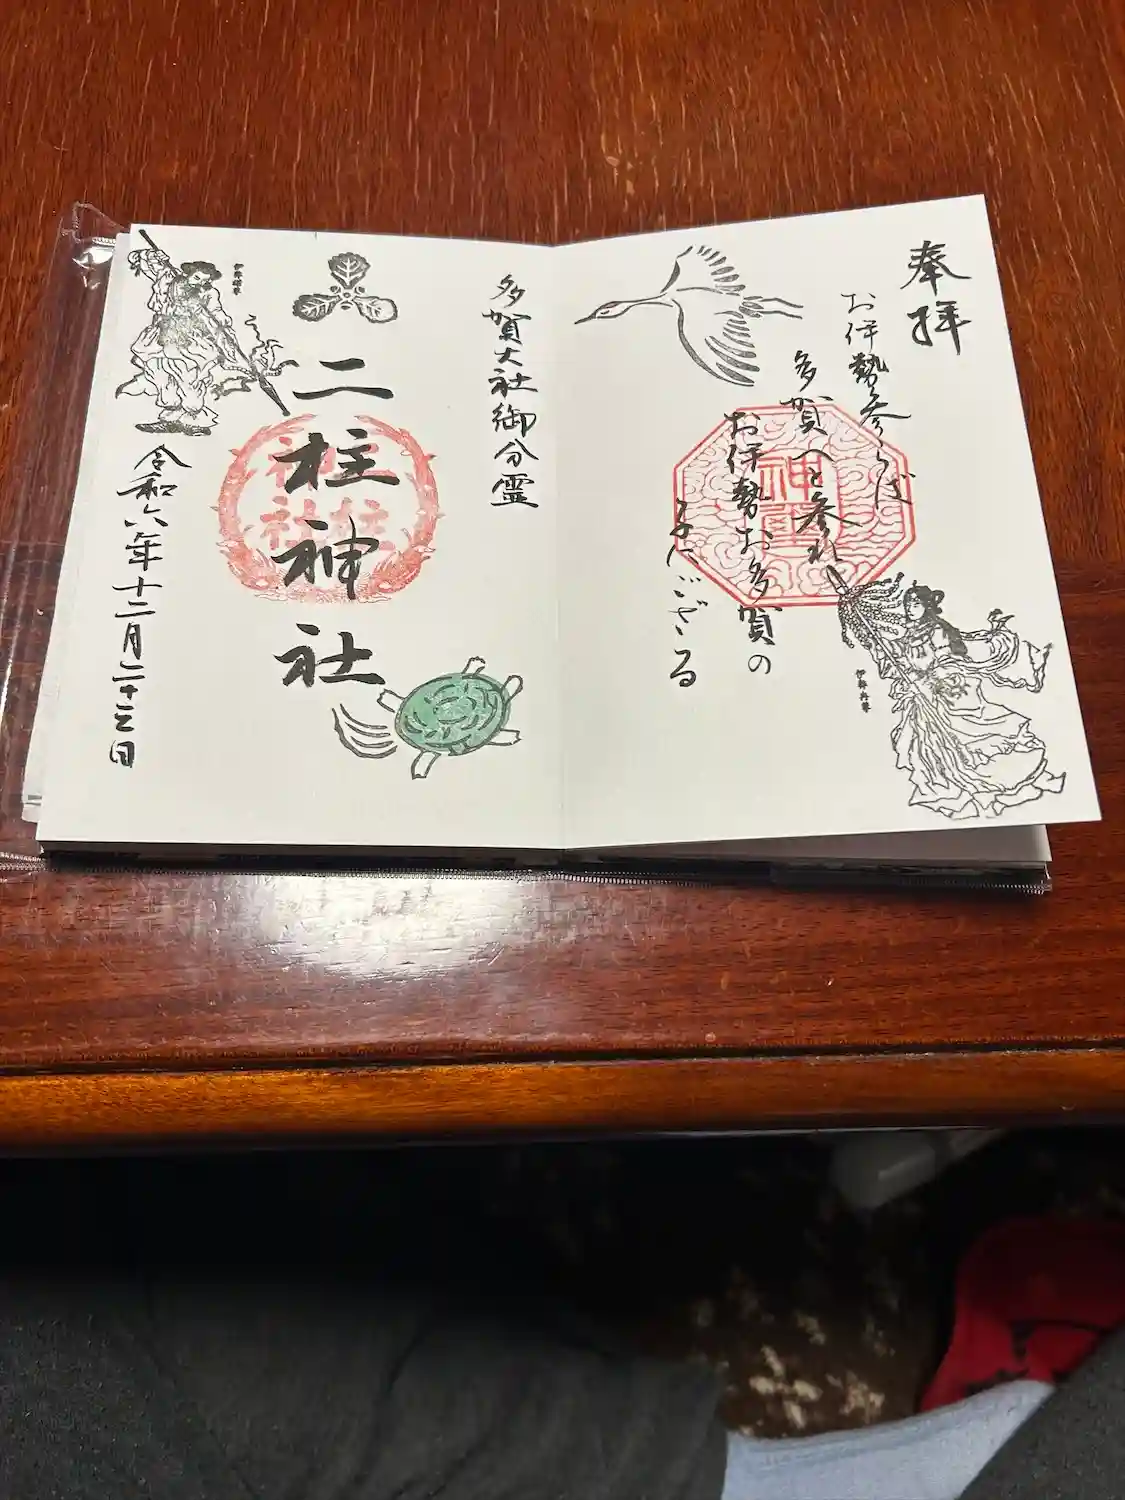 奉拝
お伊勢参らば
多賀へと参れ
お伊勢お多賀の
子にござる
神璽
伊弉冉尊
多賀大社御分霊
二柱神社
二柱神社
伊弉諾尊
令和六年十二月二十三日